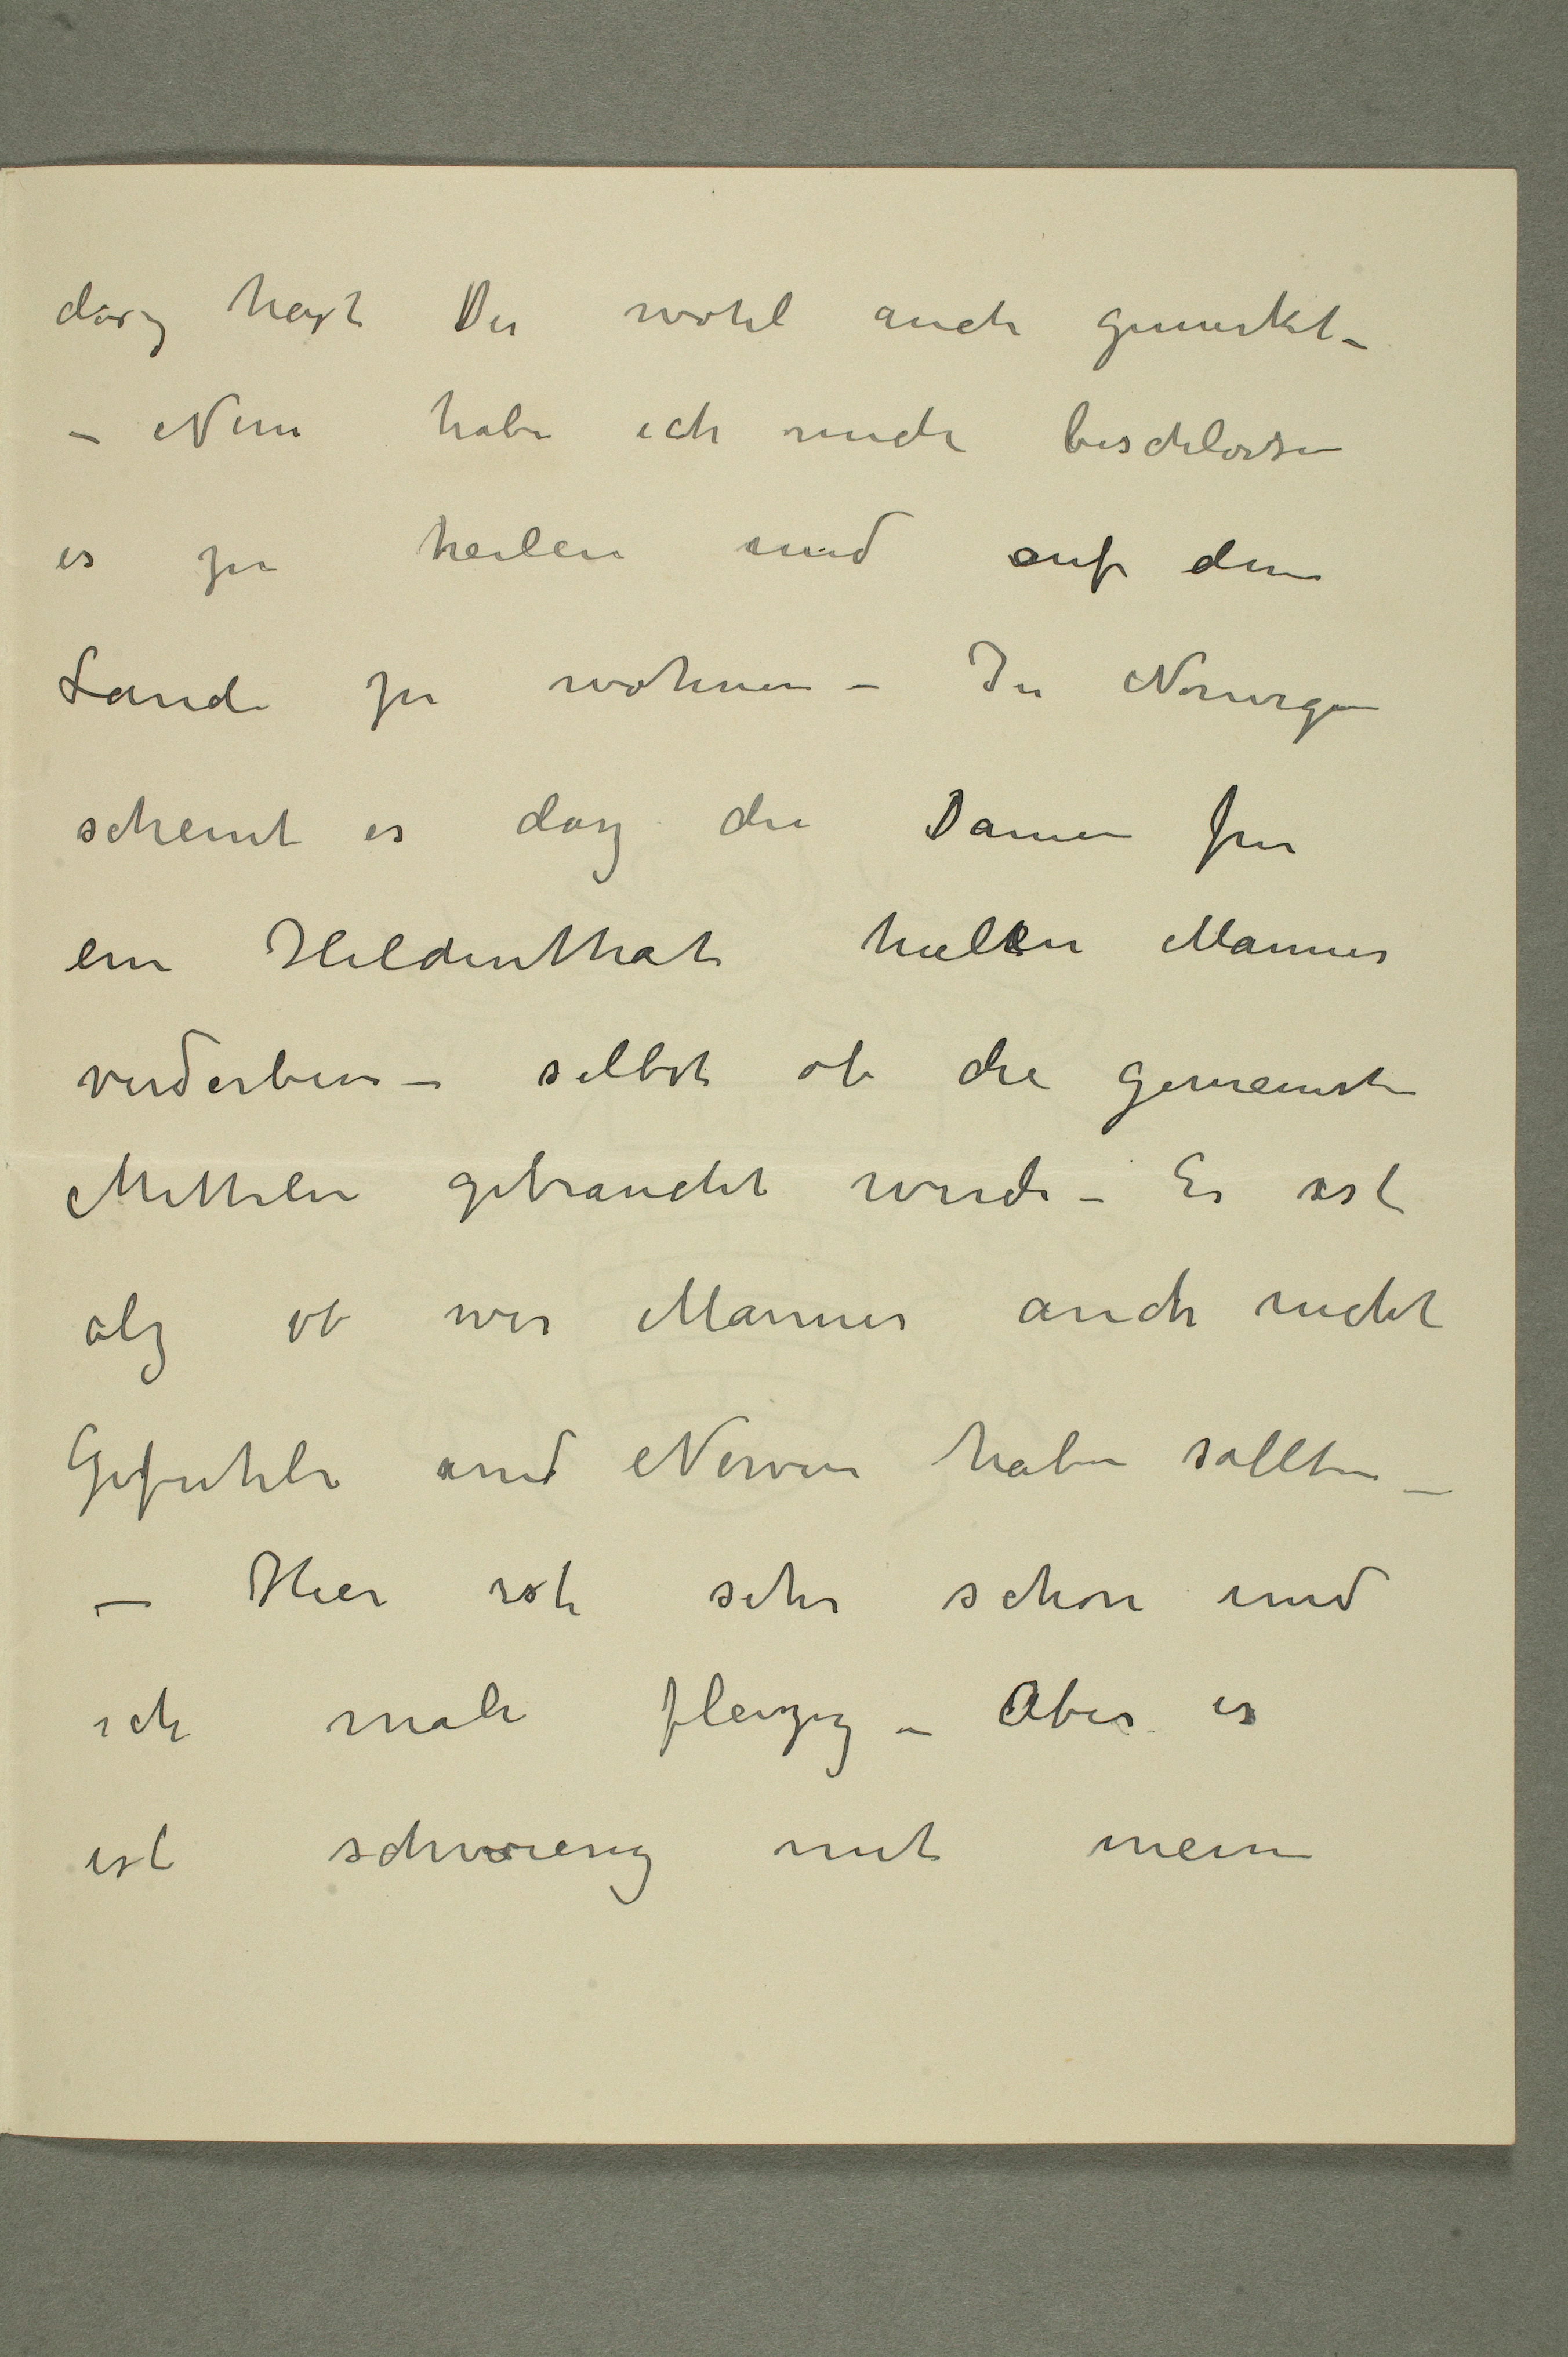 dasz hast Du wohl auch gemerkt –
– Nun habe ich mich beschlossen
es zu heilen und auf dem
Lande zu wohnen – In Norwegen
scheint es dasz die Damen fur
ein Heldenthat hielten Manner
verderben – selbst ob die gemeinste
Mittelen gebraucht wurde – Es ist
alz ob wir Manner auch nicht
Gefuhle und Nerven haben sollten –
– Hier ist sehr schon und
ich male fleizig – Aber es
ist schwierig mit mein